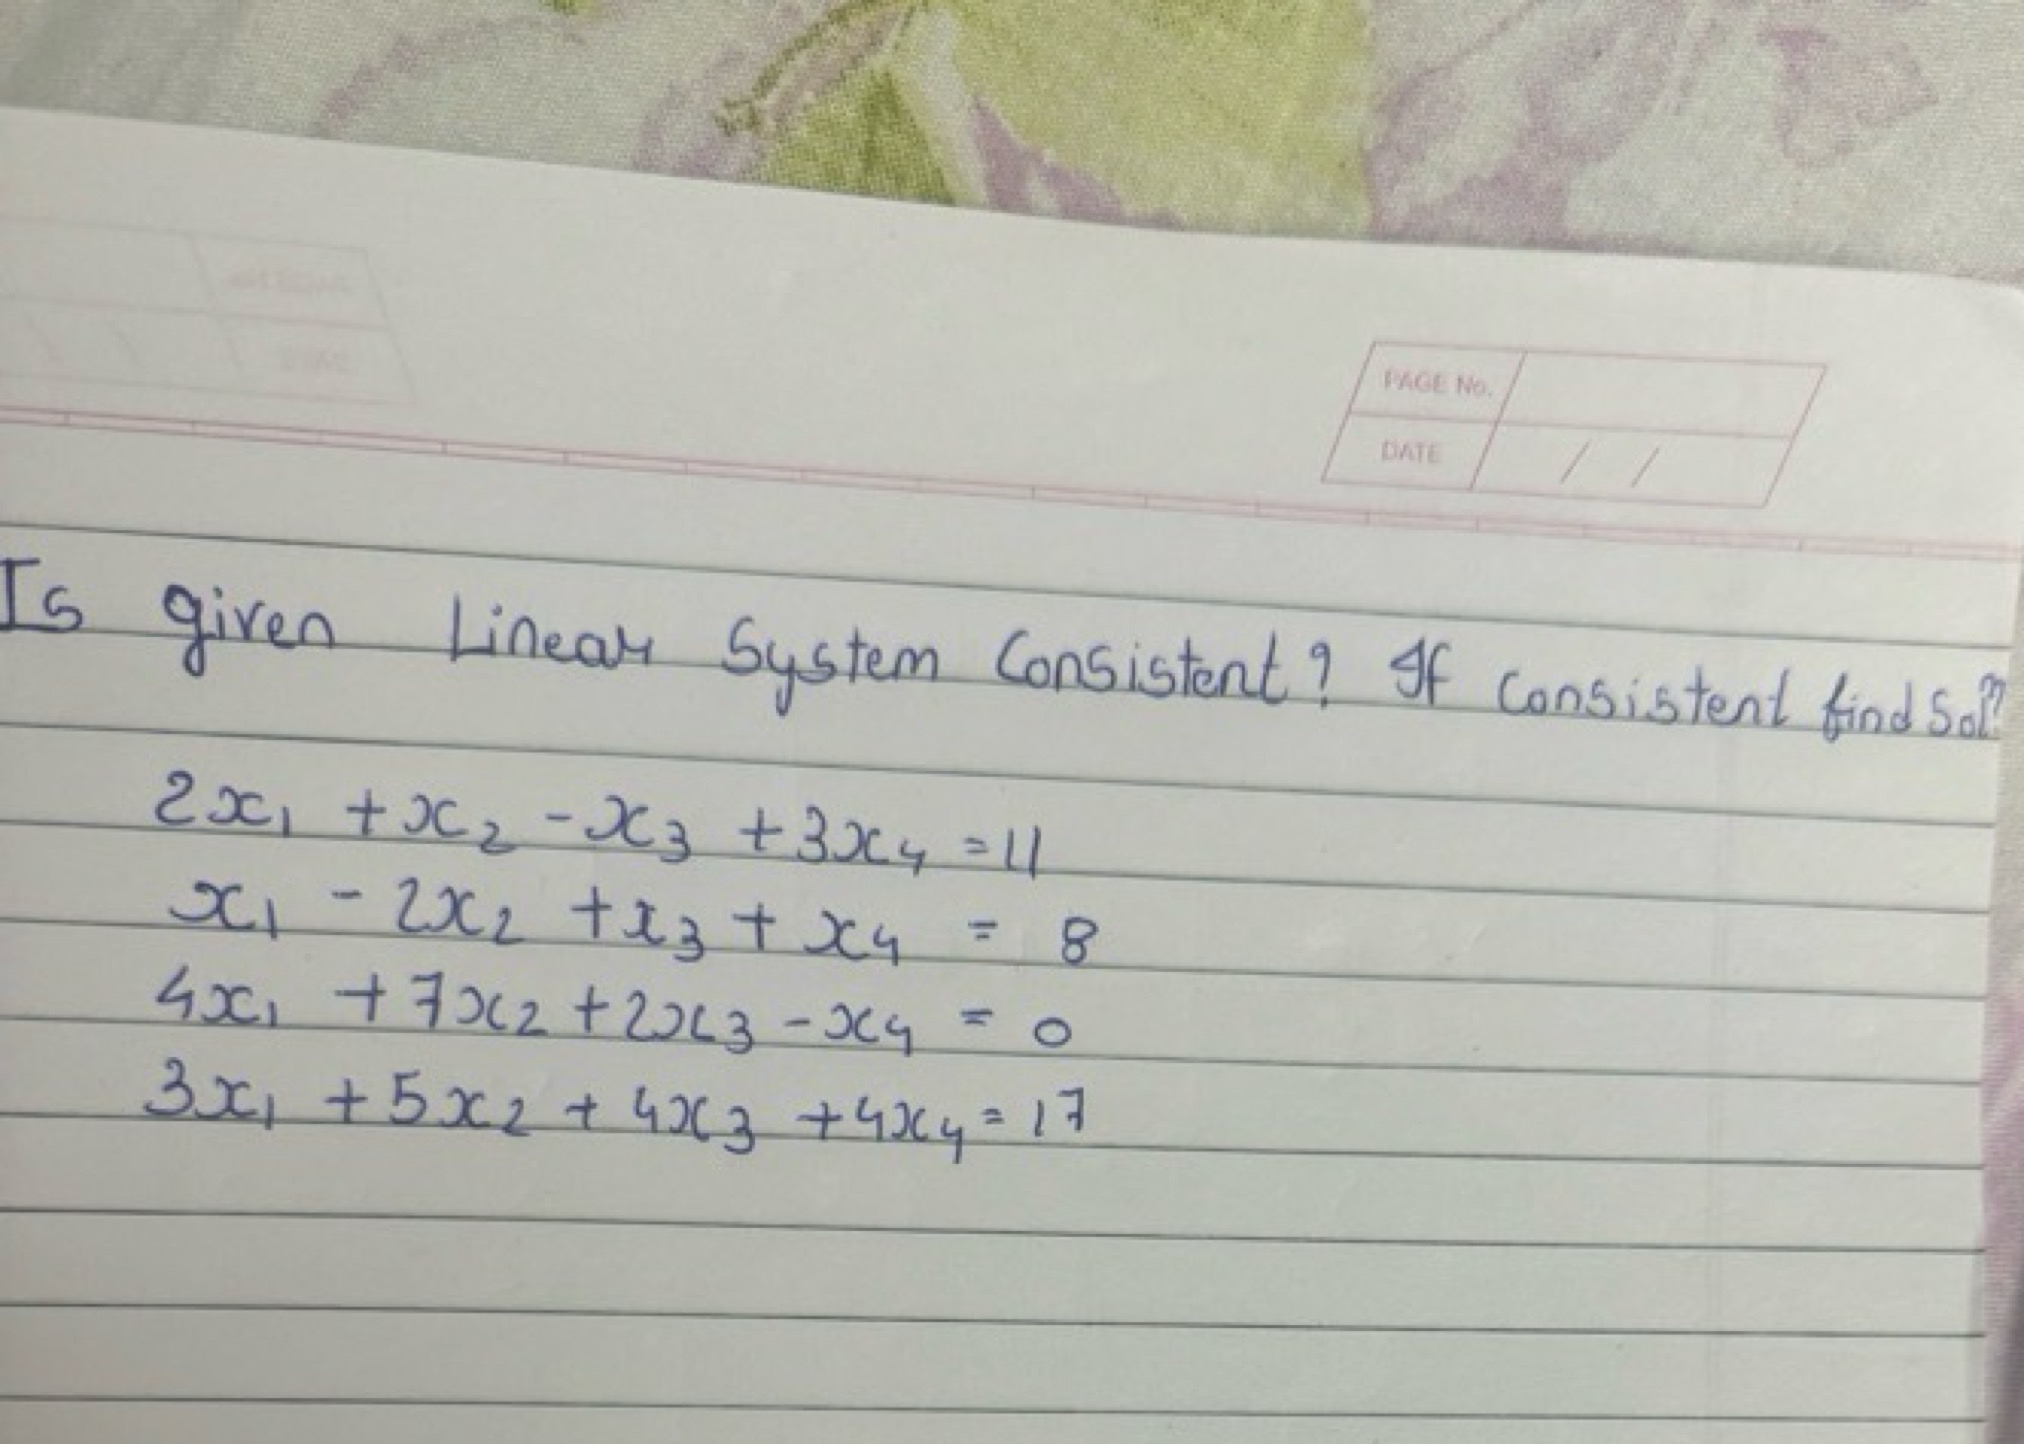 PAGE No.
DATE / /
Is given Linear System Consistent? If consistent find Solⁿ?
2x₁ + x₂ - x₃ + 3x₄ = 11
x₁ - 2x₂ + x₃ + x₄ = 8
4x₁ + 7x₂ + 2x₃ - x₄ = 0
3x₁ + 5x₂ + 4x₃ + 4x₄ = 17